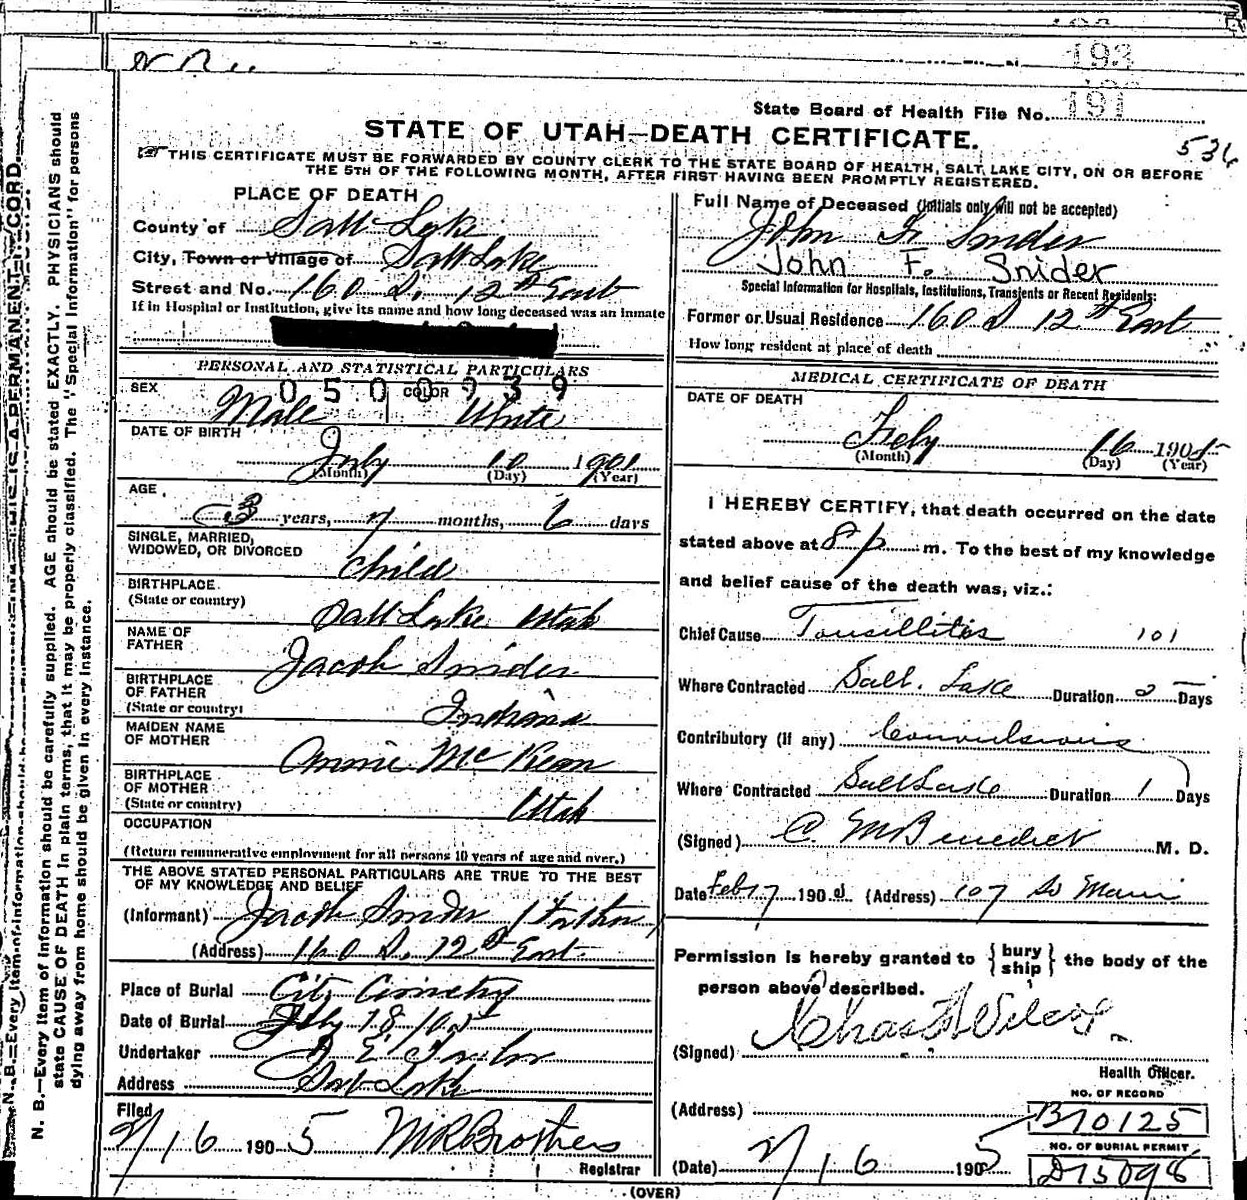 193
State Board of Health File No. 191
STATE OF UTAH—DEATH CERTIFICATE.
536
THIS CERTIFICATE MUST BE FORWARDED BY COUNTY CLERK TO THE STATE BOARD OF HEALTH, SALT LAKE CITY, ON OR BEFORE
THE 5TH OF THE FOLLOWING MONTH, AFTER FIRST HAVING BEEN PROMPTLY REGISTERED.
N. B.—Every item of information should be carefully supplied. AGE should be stated EXACTLY. PHYSICIANS should
state CAUSE OF DEATH in plain terms, that it may be properly classified. The "Special Information" for persons
dying away from home should be given in every instance.
PLACE OF DEATH
County of Salt Lake
City, Town or Village of Salt Lake
Street and No. 160 S. 12th East
If in Hospital or Institution, give its name and how long deceased was an inmate
PERSONAL AND STATISTICAL PARTICULARS
0500939
SEX Male COLOR White
DATE OF BIRTH
July 10 1901
(Month) (Day) (Year)
AGE
3 years, 7 months, 6 days
SINGLE, MARRIED,
WIDOWED, OR DIVORCED
child
BIRTHPLACE
(State or country)
Salt Lake Utah
NAME OF
FATHER
Jacob Snider
BIRTHPLACE
OF FATHER
(State or country)
Indiana
MAIDEN NAME
OF MOTHER
Annie McKean
BIRTHPLACE
OF MOTHER
(State or country)
Utah
OCCUPATION
(Return remunerative employment for all persons 10 years of age and over.)
THE ABOVE STATED PERSONAL PARTICULARS ARE TRUE TO THE BEST
OF MY KNOWLEDGE AND BELIEF
(Informant) Jacob Snider Father
(Address) 160 S. 12th East
Place of Burial City Cimetry
Date of Burial Feby 18 1905
Undertaker E Taylor
Address Salt Lake
Filed
2/16 1905 Brothers
Registrar
Full Name of Deceased (Initials only will not be accepted)
John F. Snider
John F. Snider
Special Information for Hospitals, Institutions, Transients or Recent Residents:
Former or Usual Residence 160 S 12th East
How long resident at place of death
MEDICAL CERTIFICATE OF DEATH
DATE OF DEATH
Feby 16 1905
(Month) (Day) (Year)
I HEREBY CERTIFY, that death occurred on the date
stated above at 8 p m. To the best of my knowledge
and belief cause of the death was, viz.:
Chief Cause Tonsillitis 101
Where Contracted Salt Lake Duration 2 Days
Contributory (if any) Convulsions
Where Contracted Salt Lake Duration 1 Days
(Signed) C M Benedict M. D.
Date Feb 17 1905 (Address) 107 So Main
Permission is hereby granted to {bury ship} the body of the
person above described.
(Signed) Chas F Wilcox
Health Officer.
(Address)
NO. OF RECORD
B10125
NO. OF BURIAL PERMIT
D15098
(Date) 2/16 1905
(OVER)